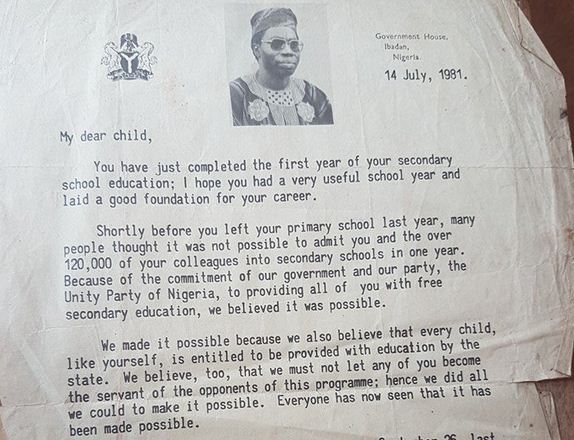 Government House,
Ibadan,
Nigeria.
14 July, 1981.
My dear child,
You have just completed the first year of your secondary
school education; I hope you had a very useful school year and
laid a good foundation for your career.
Shortly before you left your primary school last year, many
people thought it was not possible to admit you and the over
120,000 of your colleagues into secondary schools in one year.
Because of the commitment of our government and our party, the
Unity Party of Nigeria, to providing all of you with free
secondary education, we believed it was possible.
We made it possible because we also believe that every child,
like yourself, is entitled to be provided with education by the
state. We believe, too, that we must not let any of you become
the servant of the opponents of this programme; hence we did all
we could to make it possible. Everyone has now seen that it has
been made possible.
26, last